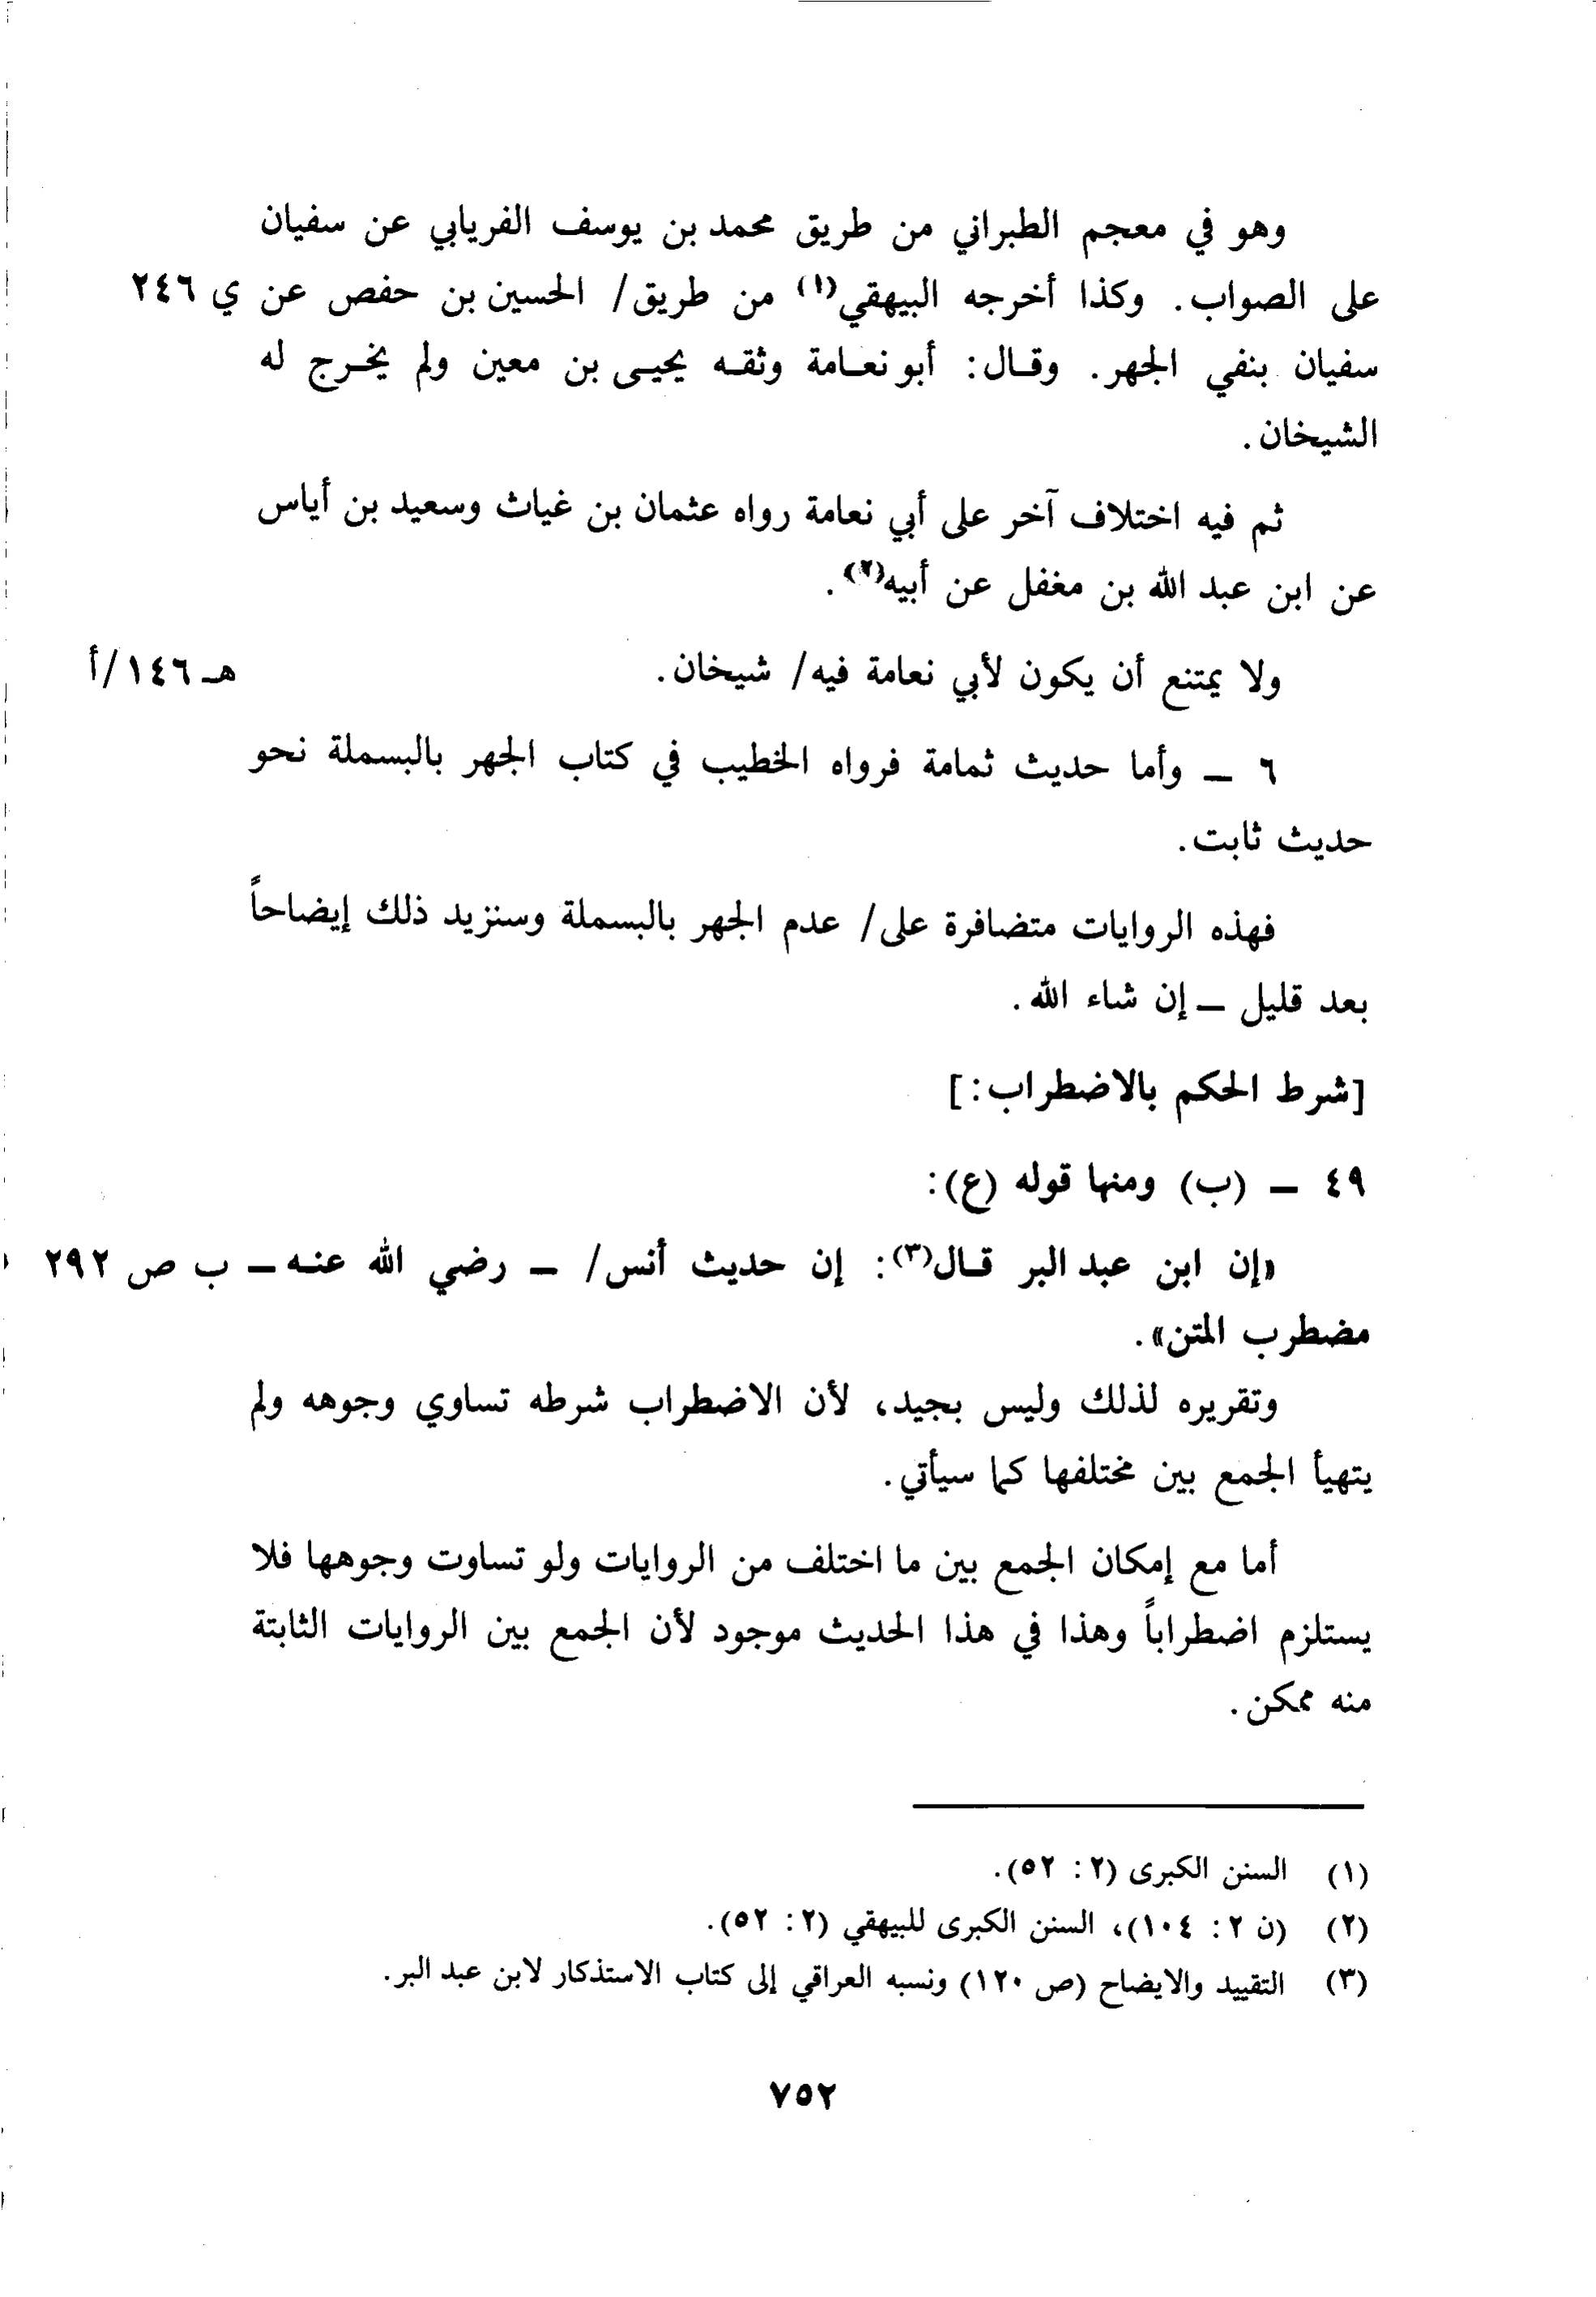 وهو في معجم الطبراني من طريق محمد بن يوسف الفريابي عن سفيان
على الصواب. وكذا أخرجه البيهقي(١) من طريق/ الحسين بن حفص عن ي ٢٤٦
سفيان بنفي الجهر. وقال: أبو نعامة وثقه يحيى بن معين ولم يخرج له
الشيخان.
ثم فيه اختلاف آخر على أبي نعامة رواه عثمان بن غياث وسعيد بن أياس
عن ابن عبد الله بن مغفل عن أبيه(٢).
ولا يمتنع أن يكون لأبي نعامة فيه/ شيخان. هـ ١٤٦/أ
٦ ــ وأما حديث ثمامة فرواه الخطيب في كتاب الجهر بالبسملة نحو
حديث ثابت.
فهذه الروايات متضافرة على/ عدم الجهر بالبسملة وسنزيد ذلك إيضاحاً
بعد قليل ــ إن شاء الله.
[شرط الحكم بالاضطراب:]
٤٩ ــ (ب) ومنها قوله (ع):
«إن ابن عبد البر قال(٣): إن حديث أنس/ ــ رضي الله عنه ــ ب ص ٢٩٢
مضطرب المتن».
وتقريره لذلك وليس بجيد، لأن الاضطراب شرطه تساوي وجوهه ولم
يتهيأ الجمع بين مختلفها كما سيأتي.
أما مع إمكان الجمع بين ما اختلف من الروايات ولو تساوت وجوهها فلا
يستلزم اضطراباً وهذا في هذا الحديث موجود لأن الجمع بين الروايات الثابتة
منه ممكن.
(١) السنن الكبرى (٢: ٥٢).
(٢) (ن ٢: ١٠٤)، السنن الكبرى للبيهقي (٢: ٥٢).
(٣) التقييد والايضاح (ص ١٢٠) ونسبه العراقي إلى كتاب الاستذكار لابن عبد البر.
٧٥٢